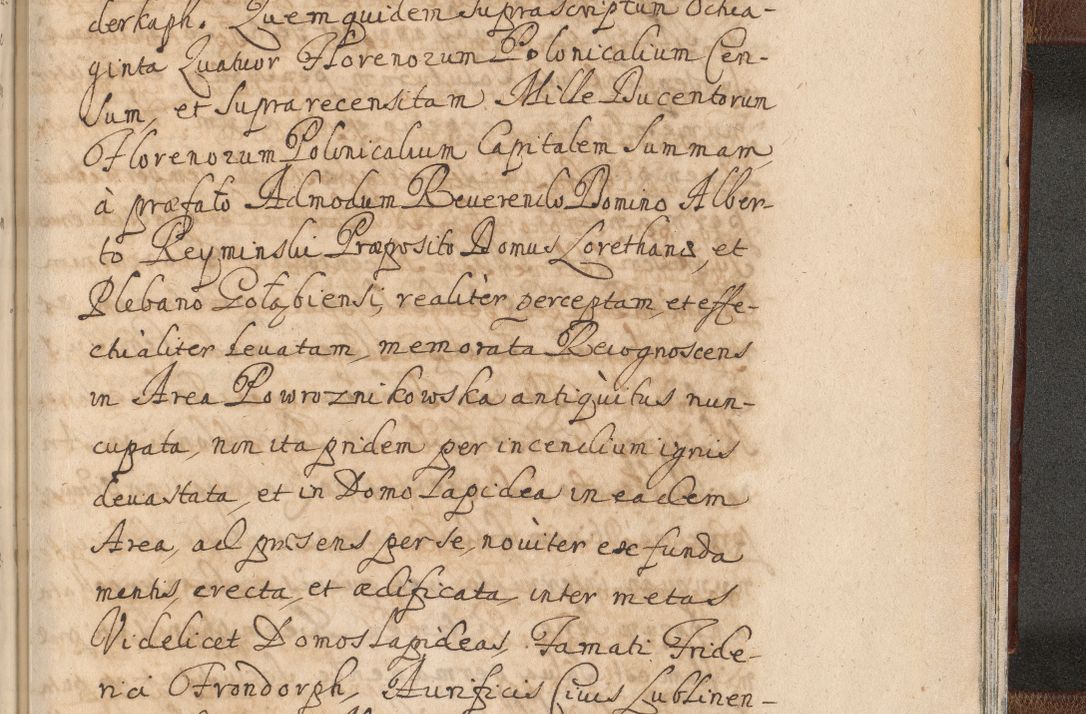 derkaph. Quem quidem suprascriptum Octua-
ginta Quatuor Florenorum Polonicalium Cen-
sum, et suprarecensitam Mille Ducentorum
Florenorum Polonicalium Capitalem Summam,
à præfato Admodum Reverendo Domino Alber-
to Reyminski Præposito Domus Lorethanæ, et
Plebano Gołąbiensi, realitèr perceptam, et effe-
ctùaliter levatam, memorata Recognoscens
in Area Powroznikowska antiqùitus nun-
cupata, non ita pridem per incendium ignis
devastata, et in Domo Lapidea in eadem
Area, ad præsens per se, novìter ex funda
mentis, erecta, et ædificata, inter metas
Videlicet Domos Lapideas Famati Fride-
rici Frondorph, Aurificis Civis Lublinen-